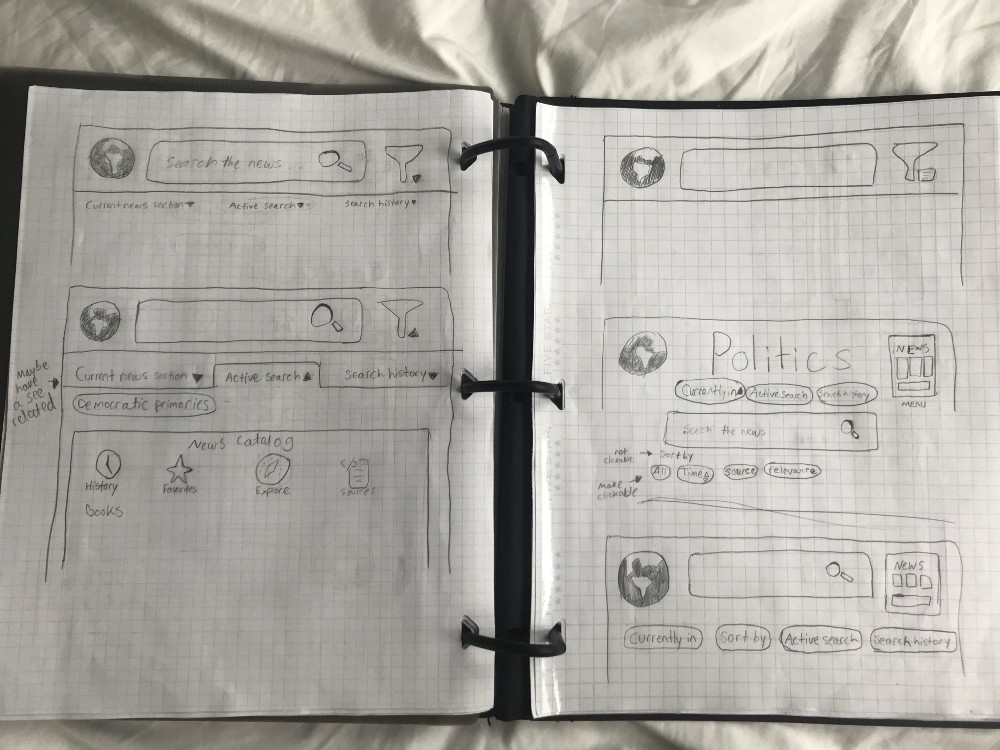 Search the news...
Current news section▼ Active search▼ Search history▼
Current news section ▼ Active search▲ Search history▼
Maybe
have
a see
related
Democratic primaries
News Catalog
History Favorites Explore </> sources
Books
Politics
NEWS
MENU
Currently in Active search Search history
Search the news
not
clickable
Sort by
All Times Source relevance
Make
clickable
NEWS
Currently in Sort by Active search Search history
FIVE STAR